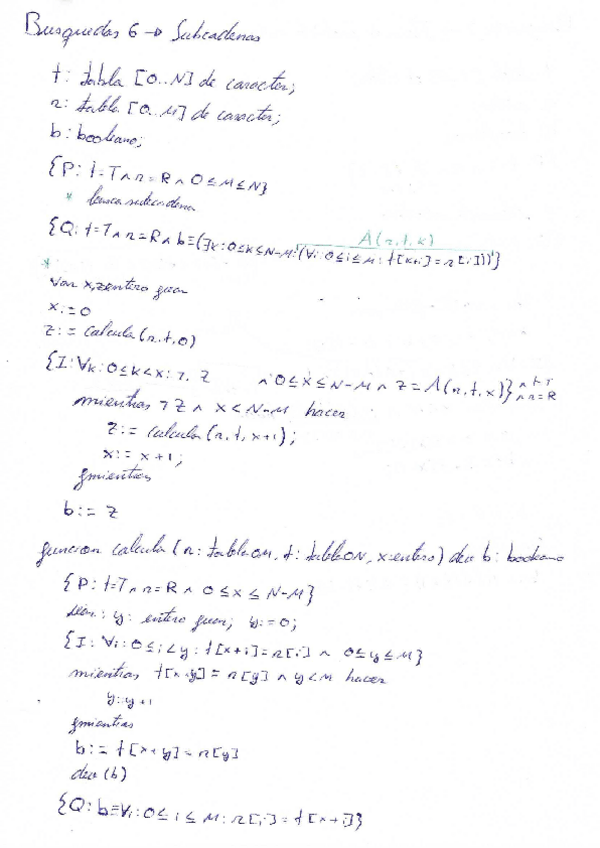 Busquedas 6 → Subcadenas
t: tabla [0..N] de caracter;
r: tabla [0..M] de caracter;
b: booleano;
{P: t=T ∧ r=R ∧ 0≤M≤N}
* busca subcadena
A(r,t,k)
{Q: t=T ∧ r=R ∧ b≡(∃k:0≤k≤N-M:(∀i:0≤i≤M: t[k+i]=r[i]))}
*
var x,z:entero fvar
x:=0
z:= calcula(r,t,0)
{I: ∀k:0≤k<x: ¬ z ∧ 0≤x≤N-M ∧ z=A(r,t,x)} ∧ t=T ∧ r=R
mientras ¬z ∧ x<N-M hacer
z:= calcula(r,t,x+1);
x:= x+1;
fmientras
b:= z
funcion calcula (r: tabla0M, t: tabla0N, x:entero) dev b: booleano
{P: t=T ∧ r=R ∧ 0≤x≤N-M}
var: y: entero fvar; y:=0;
{I: ∀i:0≤i<y: t[x+i]=r[i] ∧ 0≤y≤M}
mientras t[x+y]=r[y] ∧ y<M hacer
y:y+1
fmientras
b:= t[x+y]=r[y]
dev (b)
{Q: b≡∀i:0≤i≤M: r[i]=t[x+i]}